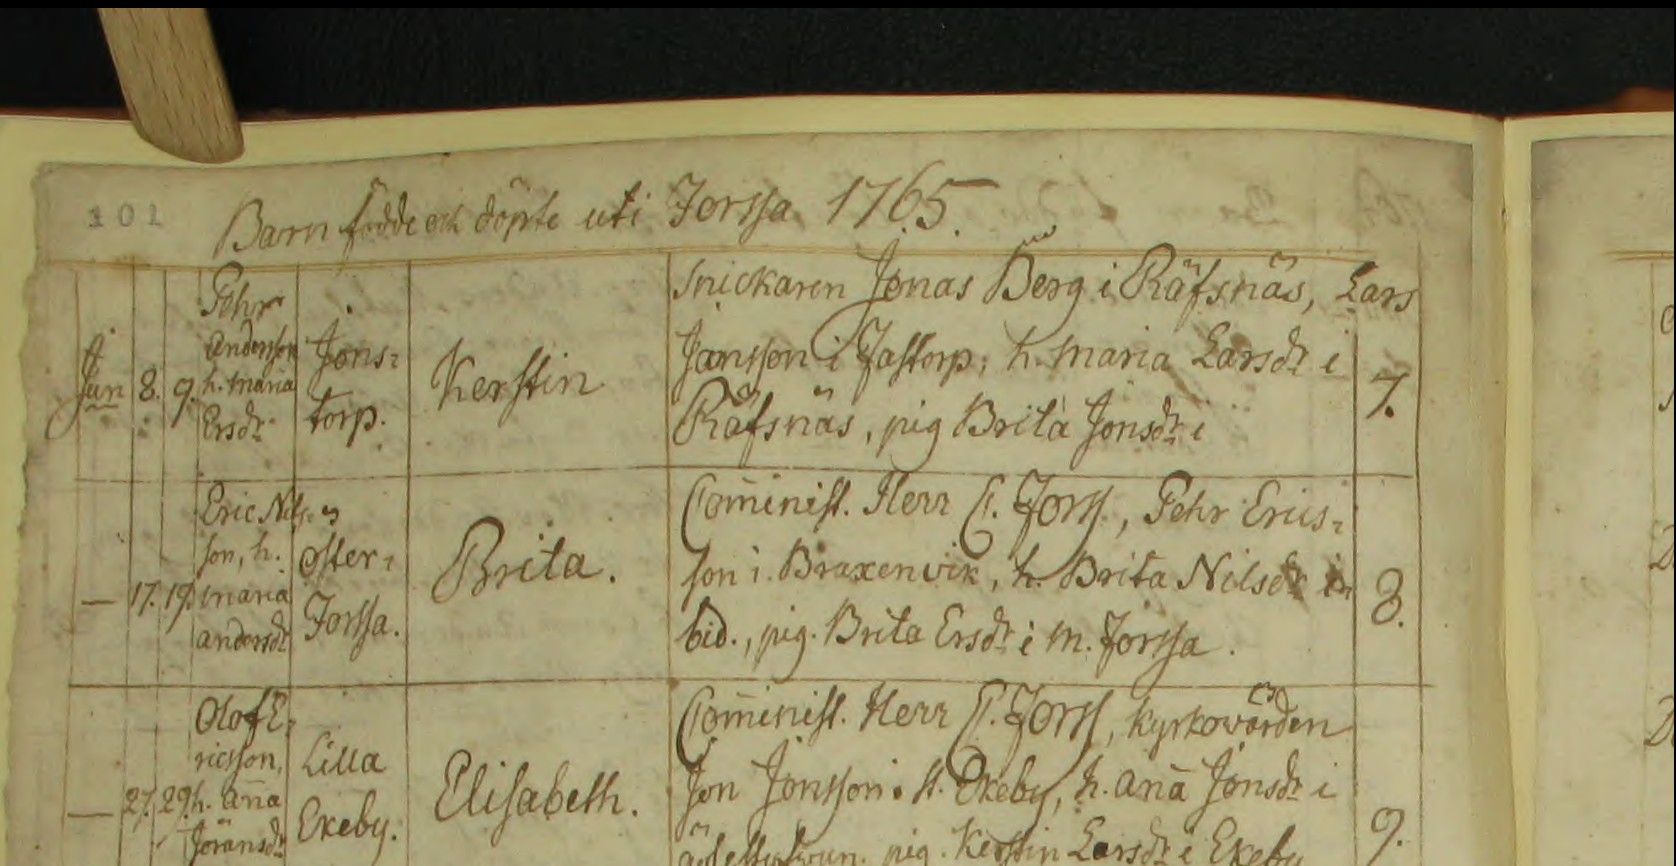 101
Barn födde och döpte uti Forssa 1765.
Jun 8. 9.
Pehr
Anderson
h. Maria
Ersdr
Jons-
torp.
Kerstin
Snickaren Jonas Berg i Räfsnäs, Lars
Jansson i Jastorp, h. Maria Larsdr i
Räfsnäs, pig Brita Jonsdr i
7.
— 17. 19.
Eric Nils-
son, h.
Maria
Andersdr
Öster-
Forssa.
Brita.
Cominist. Herr C. Forss, Pehr Erics-
son i Braxenvik, h. Brita Nilsdr
bid., pig. Brita Ersdr i M. Forssa.
8.
— 27. 29.
Olof E-
ricsson,
h. Anna
Jöransdr
Lilla
Ekeby.
Elisabeth.
Cominist. Herr C. Forss, Kyrkowärden
Jon Jonsson. st. Ekeby, h. Anna Jonsdr i
pig. Kerstin Larsdr i Ekeby
9.